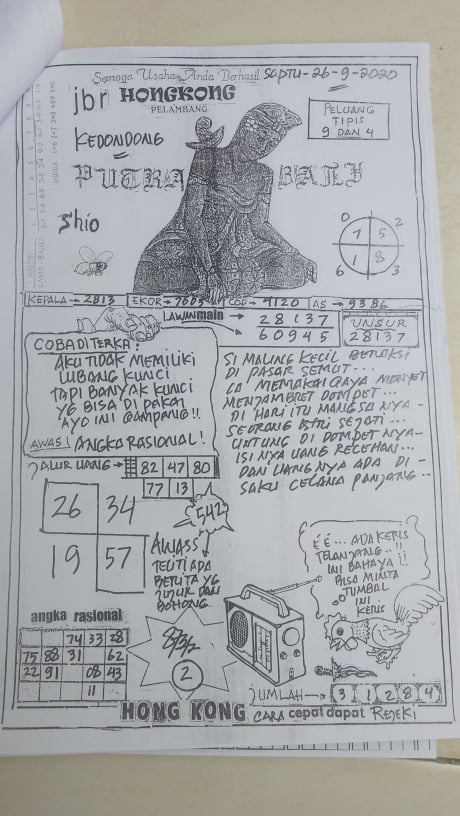 Semoga Usaha Anda Berhasil
SABTU-26-9-2020
jbr HONGKONG
PELAMBANG
KEDONDONG
PELUANG
TIPIS
9 DAN 4
PUTRA BALI
Shio
0 2
7 5
1 8
6 3
KEPALA → 2813 EKOR → 7605 COP → 9120 AS → 9386
LAWAN main → 28137
60945
UNSUR
28137
COBA DI TERKA:
AKU TIDAK MEMILIKI
LUBANG KUNCI
TAPI BANYAK KUNCI
YG BISA DI PAKAI
AYO INI GAMPANG!!
AWAS! ANGKA RASIONAL!
SI MALING KECIL BERAKSI
DI PASAR SEMUT...
IA MEMAKAI GAYA MONYET
MENJAMBRET DOMPET...
DI HARI ITU MANGSA NYA-
SEORANG ISTRI SEJATI...
UNTUNG DI DOMPET NYA-
ISI NYA UANG RECEHAN...
DAN UANG NYA ADA DI-
SAKU CELANA PANJANG...
JALUR UANG → 82 47 80
77 13
542
26 34
19 57
AWASS
TELITI ADA
BERITA YG
JUJUR DAN
BOHONG
É É... ADA KERIS
TELANJANG..!!
INI BAHAYA!!
BISA MINTA
TUMBAL
INI
KERIS
angka rasional
74 33 28
75 88 31 62
22 91 08 43
11
2
JUMLAH → 3 1 2 8 4
HONG KONG CARA cepat dapat REJEKI